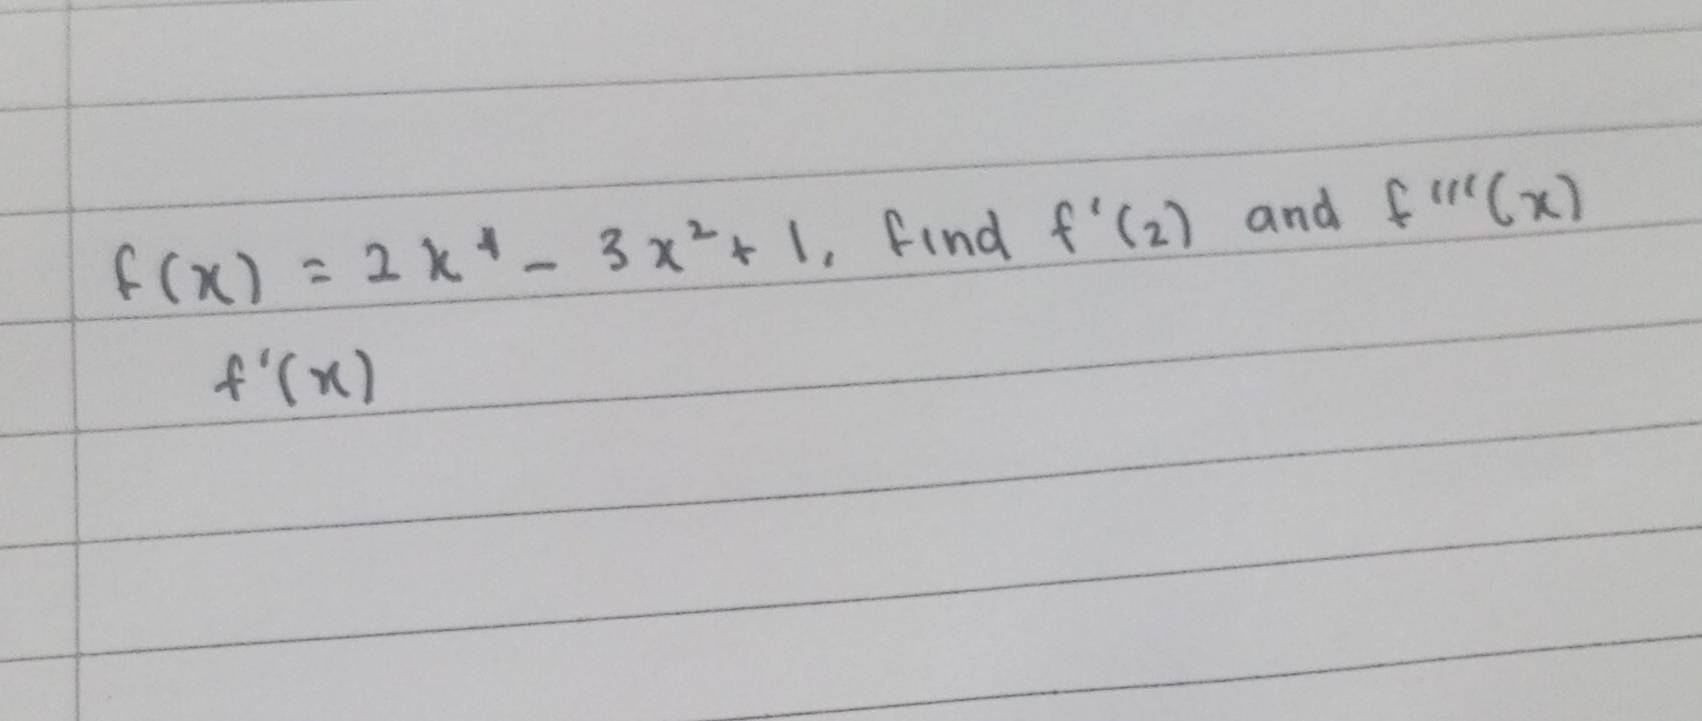 f(x) = 2x⁴ - 3x² + 1, find f'(2) and f'''(x)
f'(x)